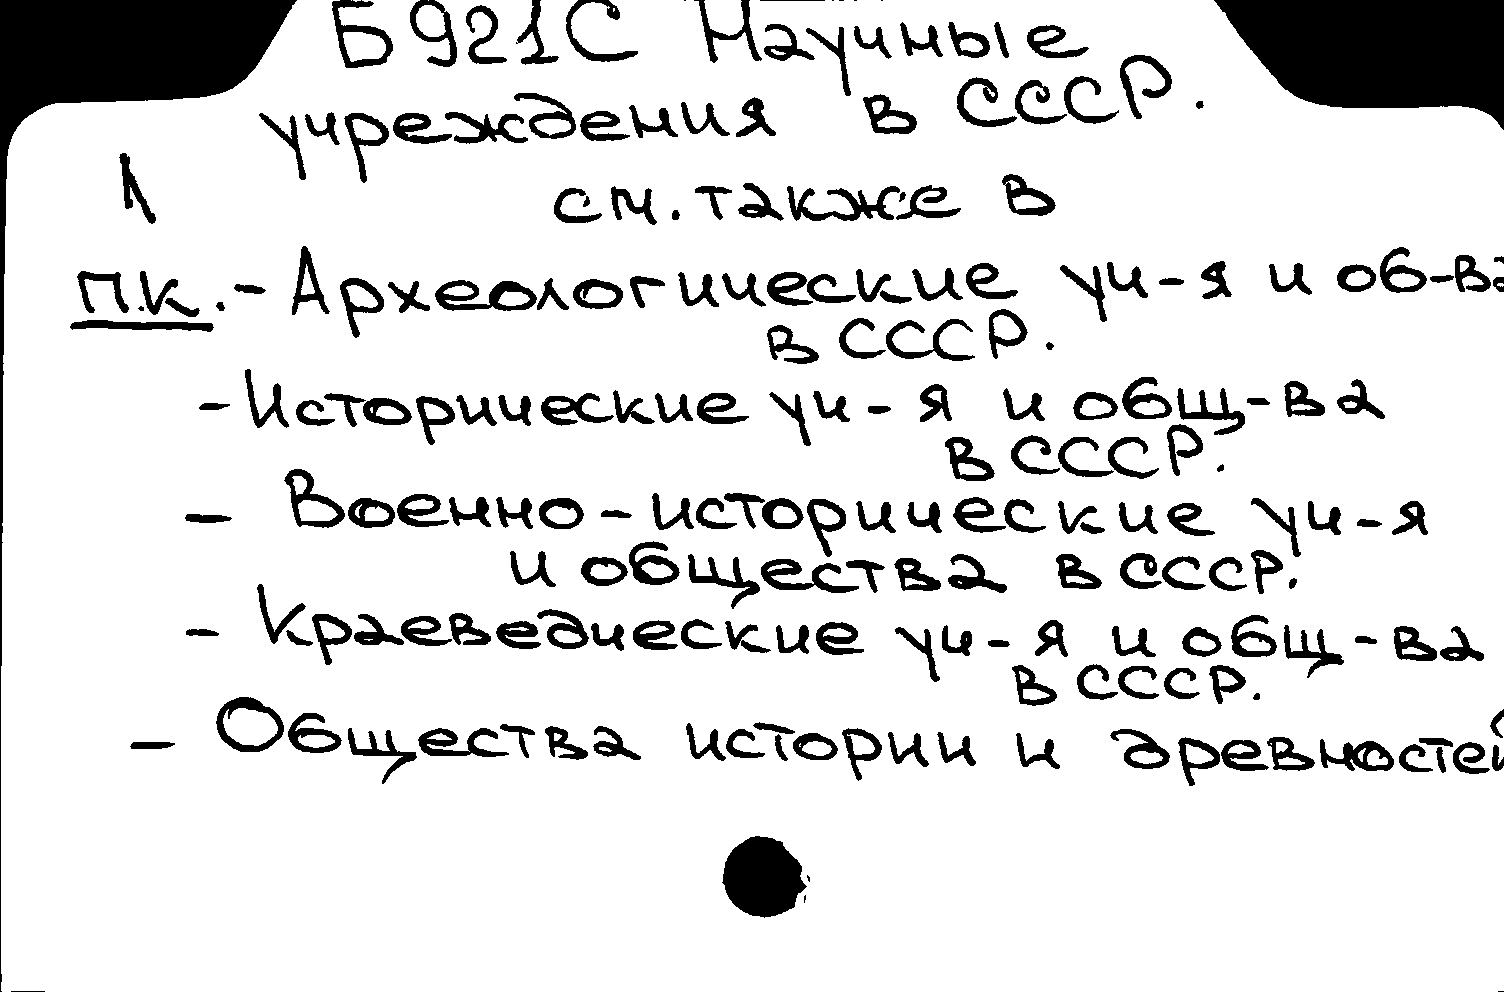 Б921С Научные
учреждения в СССР.
см. также в
п.к. - Археологические уч-я и об-ва
в СССР.
- Исторические уч-я и общ-ва
в СССР.
- Военно-исторические уч-я
и общества в СССР.
- Краеведческие уч-я и общ-ва
в СССР.
- Общества истории и древностей